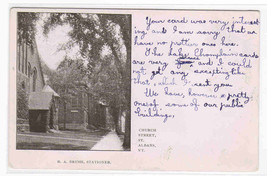 Your card was very interest
ing and I am sorry that we
have no prettier one here.
The Lake Champlain cards
are very and I could
not get any excepting like
that which I sent you
We have, however a pretty
one of some of our public
buildings.
CHURCH
STREET,
ST.
ALBANS,
VT.
STATIONER